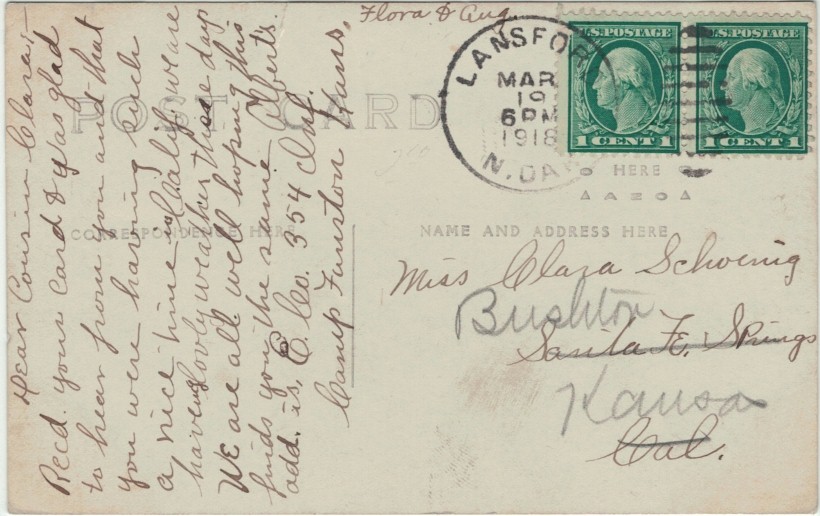 Flora & Aug.
LANSFORD
MAR
19
6PM
1918
N. DAK.
U.S. POSTAGE
1 CENT 1
U.S. POSTAGE
1 CENT 1
POST CARD
HERE
CORRESPONDENCE HERE
NAME AND ADDRESS HERE
Dear Cousin Clara,—
Recd. your card & was glad
to hear from you and that
you were having such
a nice time in Calif. we are
having lovly weather these days
We are all well hoping this
finds you the same Albert's
add. is, E. Co. 354 Inf.
Camp Funston Kans.
Miss Clara Schoenig
Bushton
Santa Fe, Springs
Kansas
Cal.